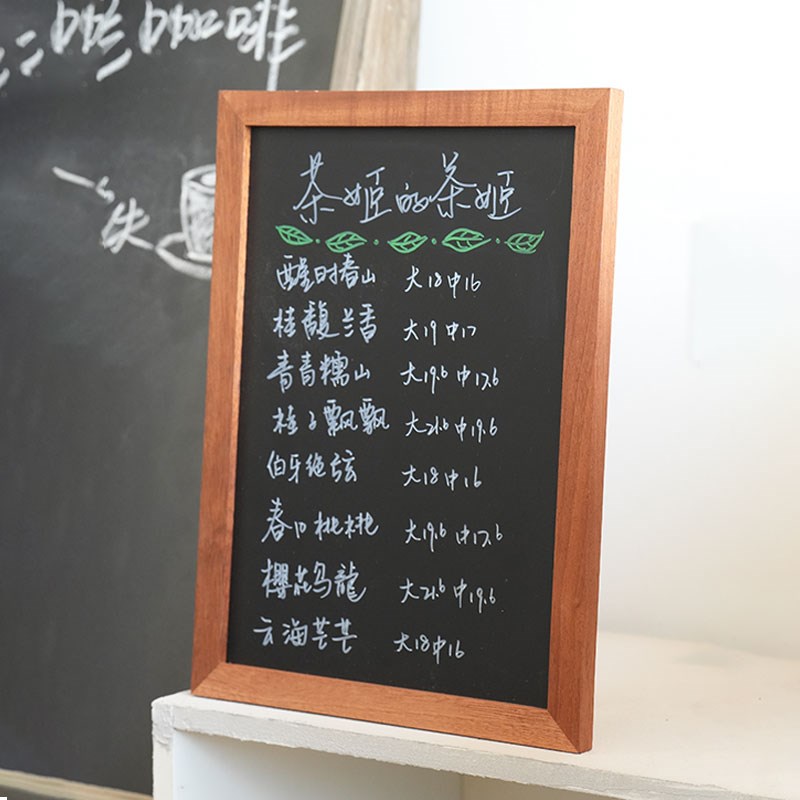 茶姬的茶姬
醒时春山 大18中16
桂馥兰香 大19中17
青青糯山 大19.6中17.6
桂子飘飘 大21.6中19.6
伯牙绝弦 大18中16
春日桃桃 大19.6中17.6
櫻花乌龍 大21.6中19.6
云海芒芒 大18中16